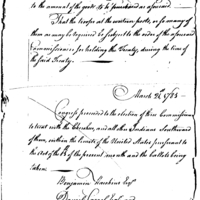 to the amount of the goods to be purchased as aforesaid.
That the troops at the western posts, or so many of
them as may be required be subject to the order of the aforesaid
Commissioners for holding the Treaty, during the time of
the said Treaty.
March 21st 1785
Congress proceeded to the election of three Commissioners
to treat with the Cherokees, and all other Indians Southward
of them, within the limits of the United States pursuant to
the Act of the of the present month and the ballots being
taken
Benjamin Hawkins Esqr